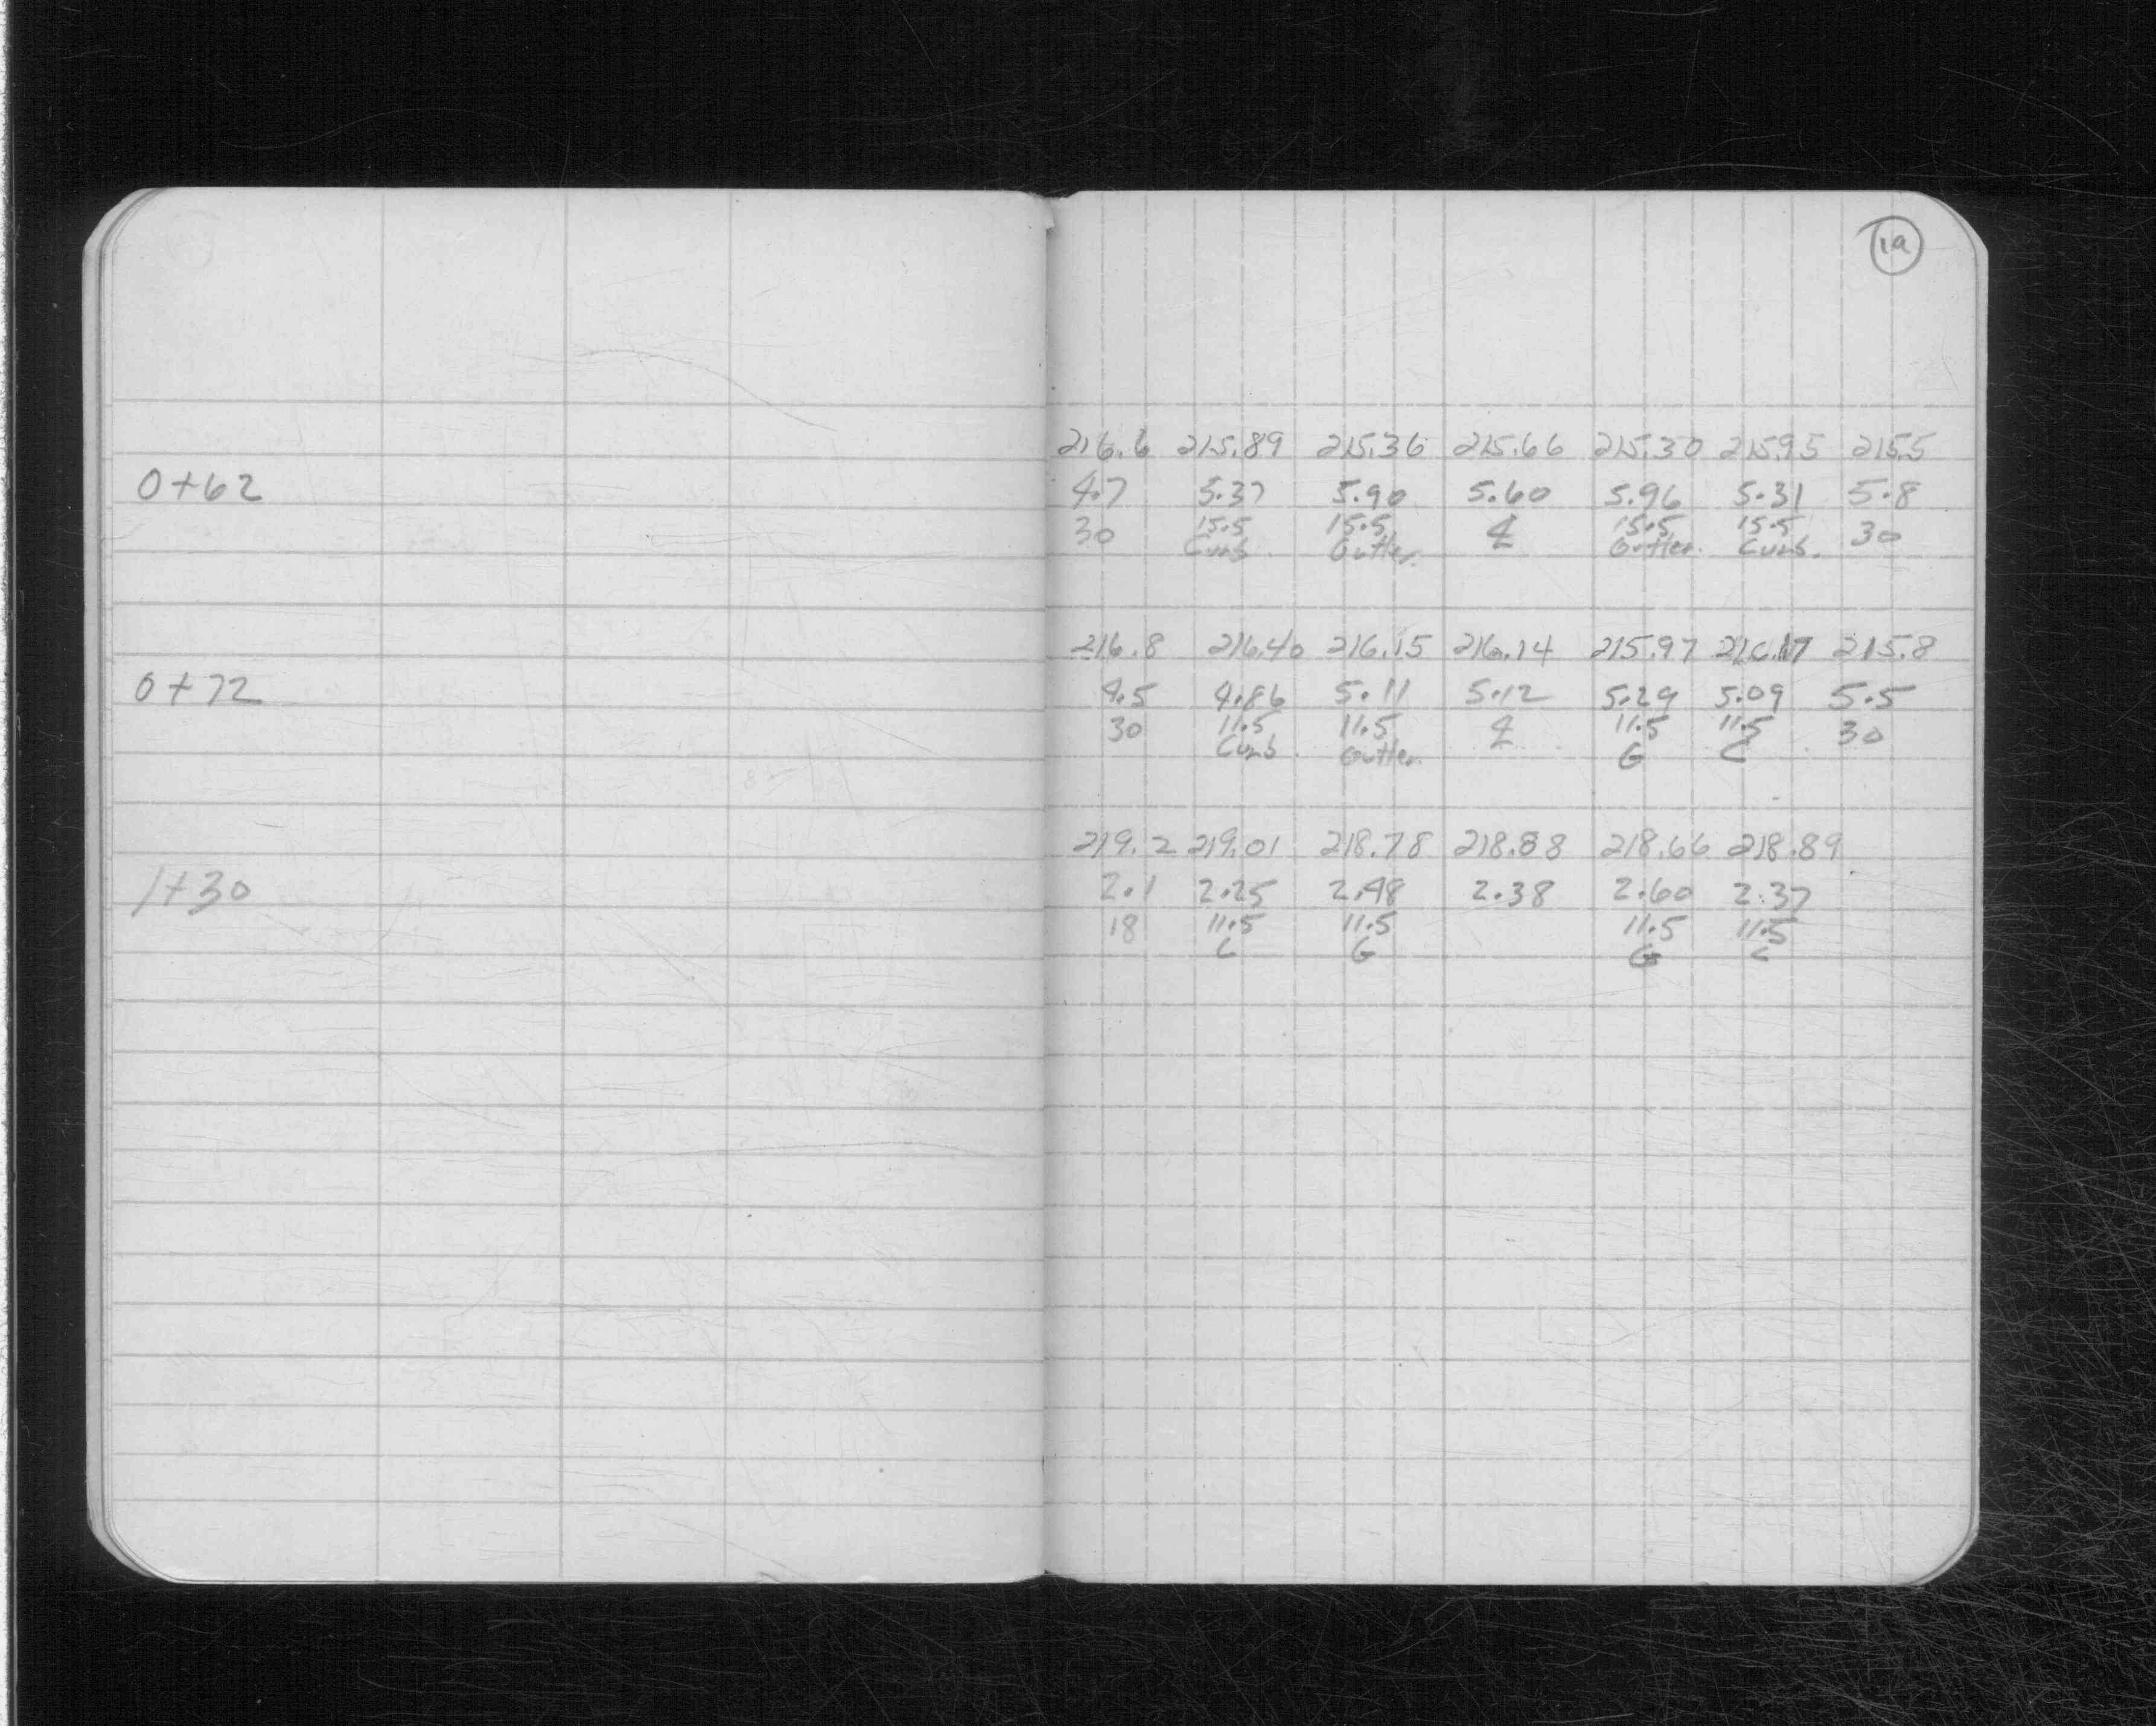 1a
216.6 215.89 215.36 215.66 215.30 215.95 215.5
0+62 4.7 5.37 5.90 5.60 5.96 5.31 5.8
30 15.5 15.5 ℄ 15.5 15.5 30
Curb Gutter. Gutter. Curb.
216.8 216.40 216.15 216.14 215.97 216.17 215.8
0+72 4.5 4.86 5.11 5.12 5.29 5.09 5.5
30 11.5 11.5 ℄ 11.5 11.5 30
Curb Gutter. G C
219.2 219.01 218.78 218.88 218.66 218.89
1+30 2.1 2.25 2.48 2.38 2.60 2.37
18 11.5 11.5 11.5 11.5
C G G C